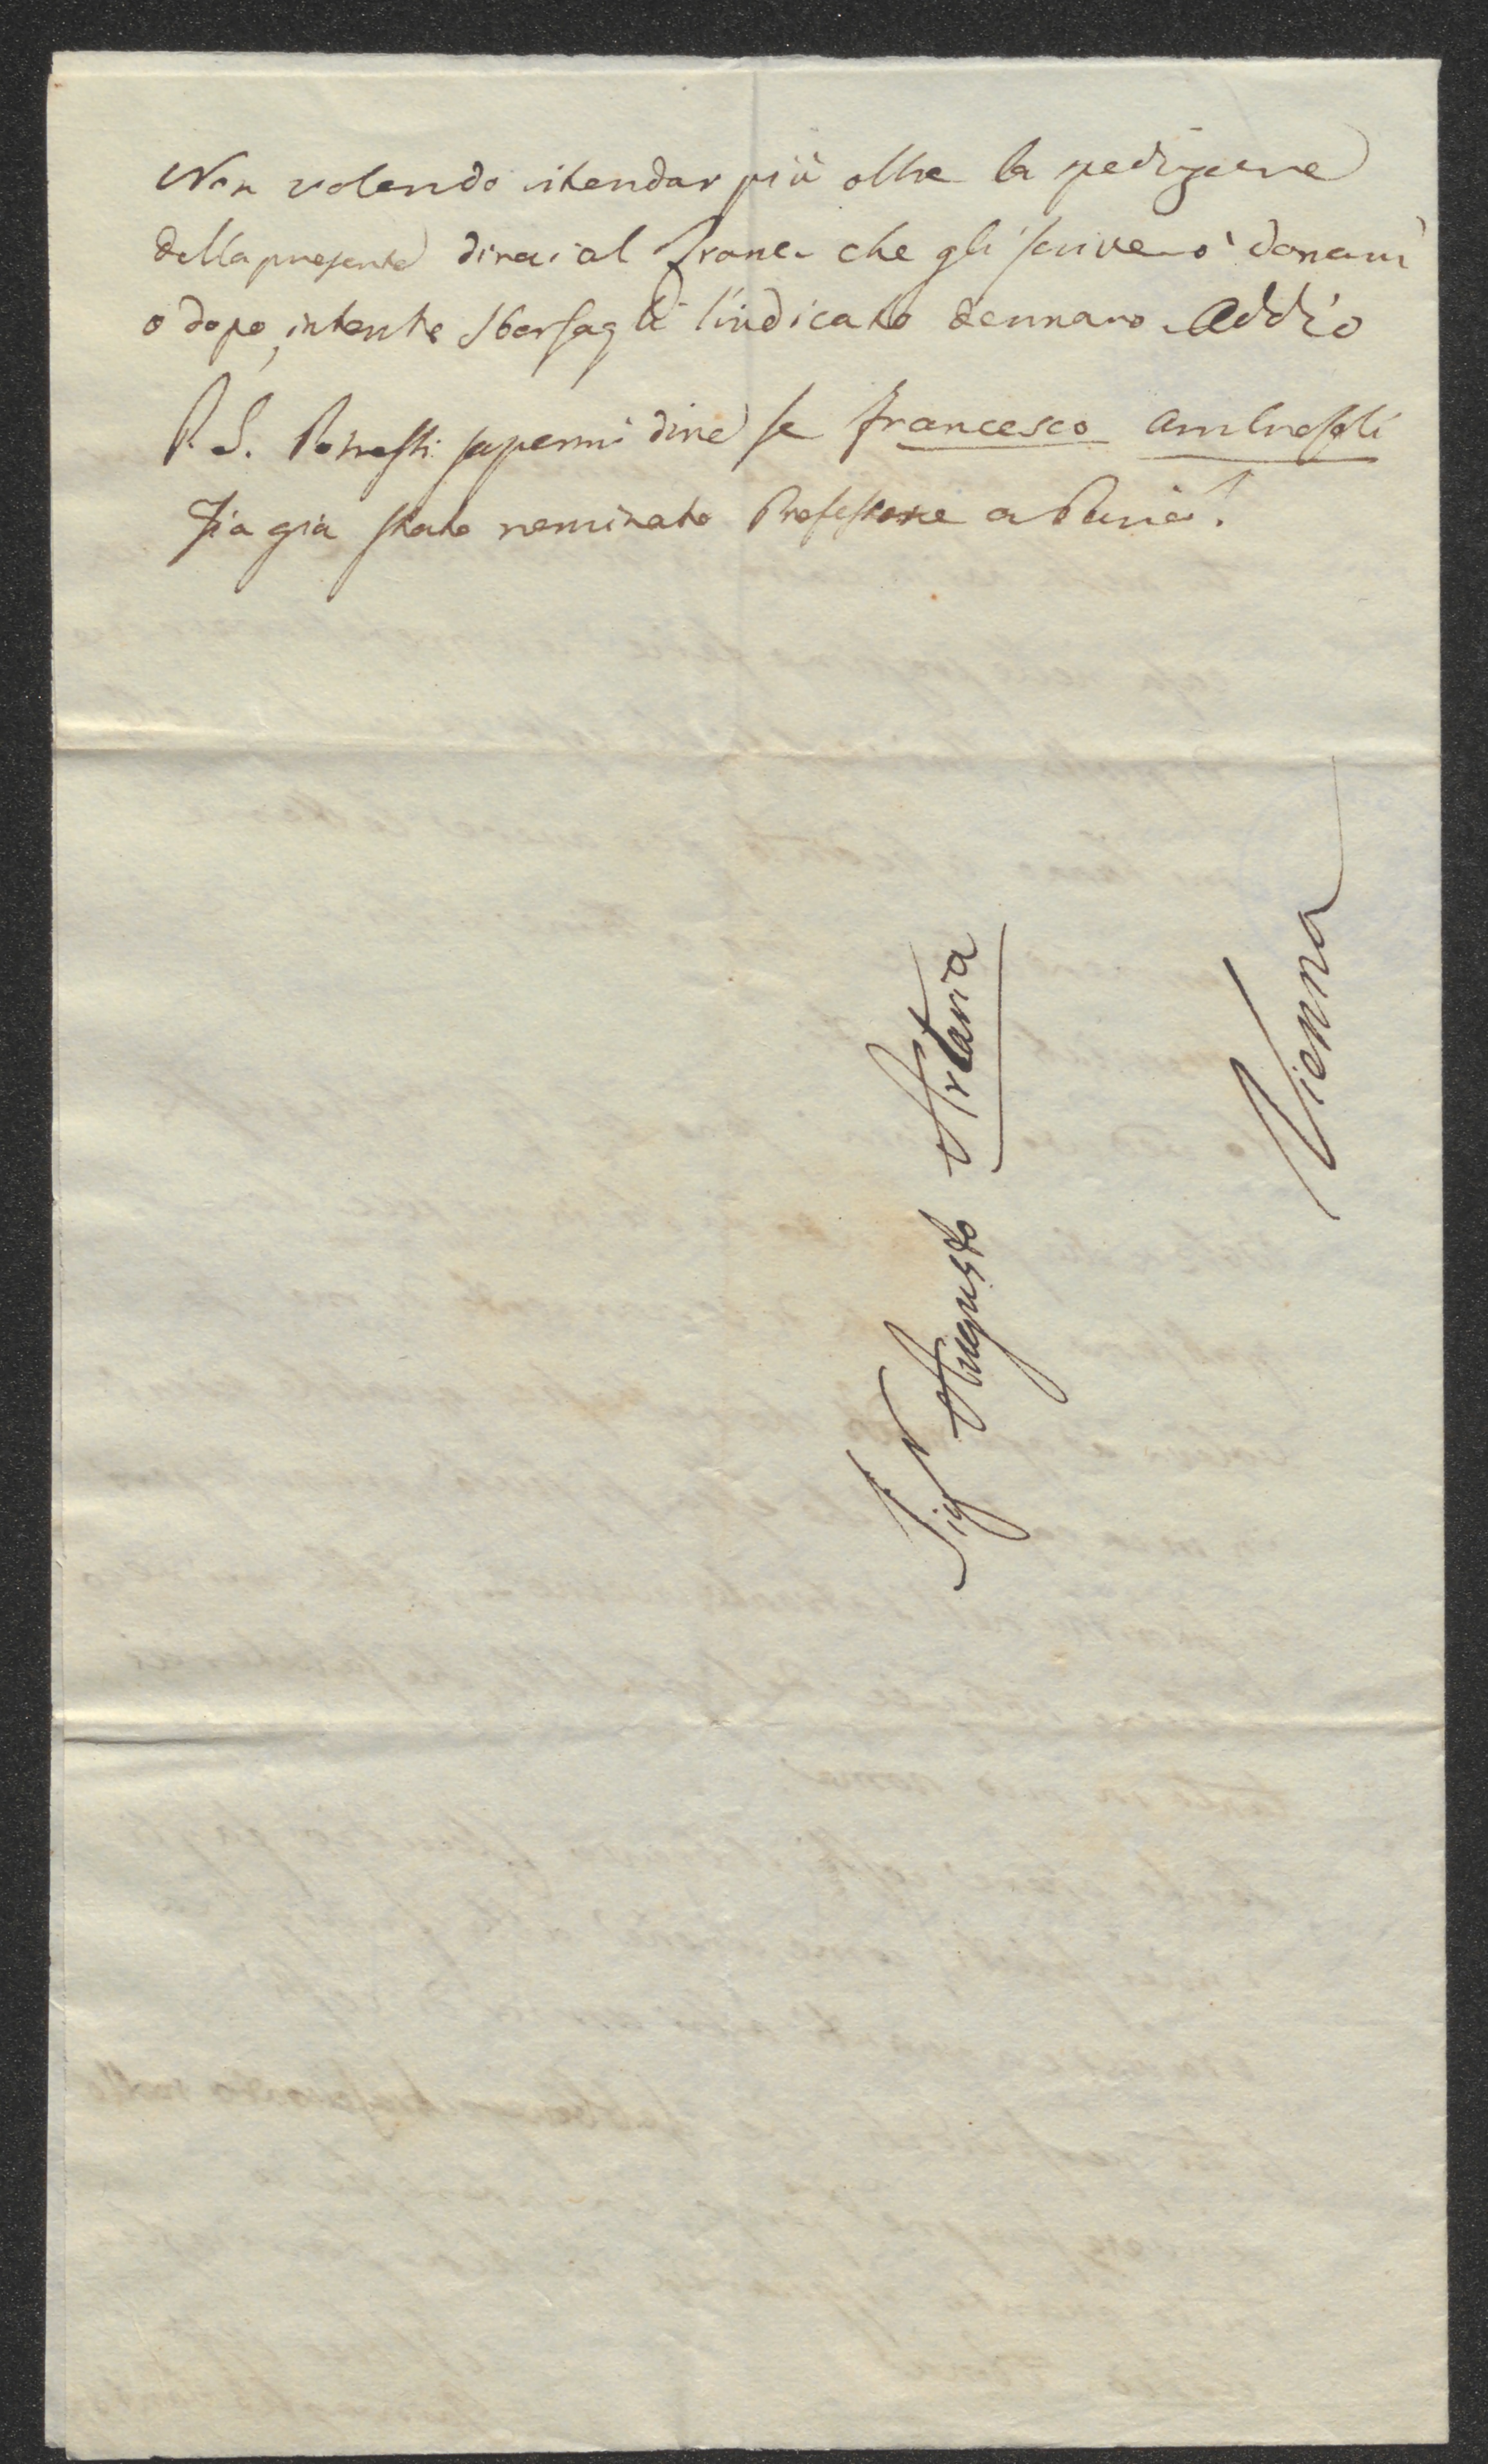 Non volendo ritardar più oltre la spedizione
della presente dirai al Franc. che gli scriverò domani
o dopo, intanto sborsagli l'indicato dennaro. Addio
P.S. Potresti sapermi dire se Francesco Ambrosoli
sia già stato nominato Professore a Pavia?
Sigr Augusto Artaria
Vienna